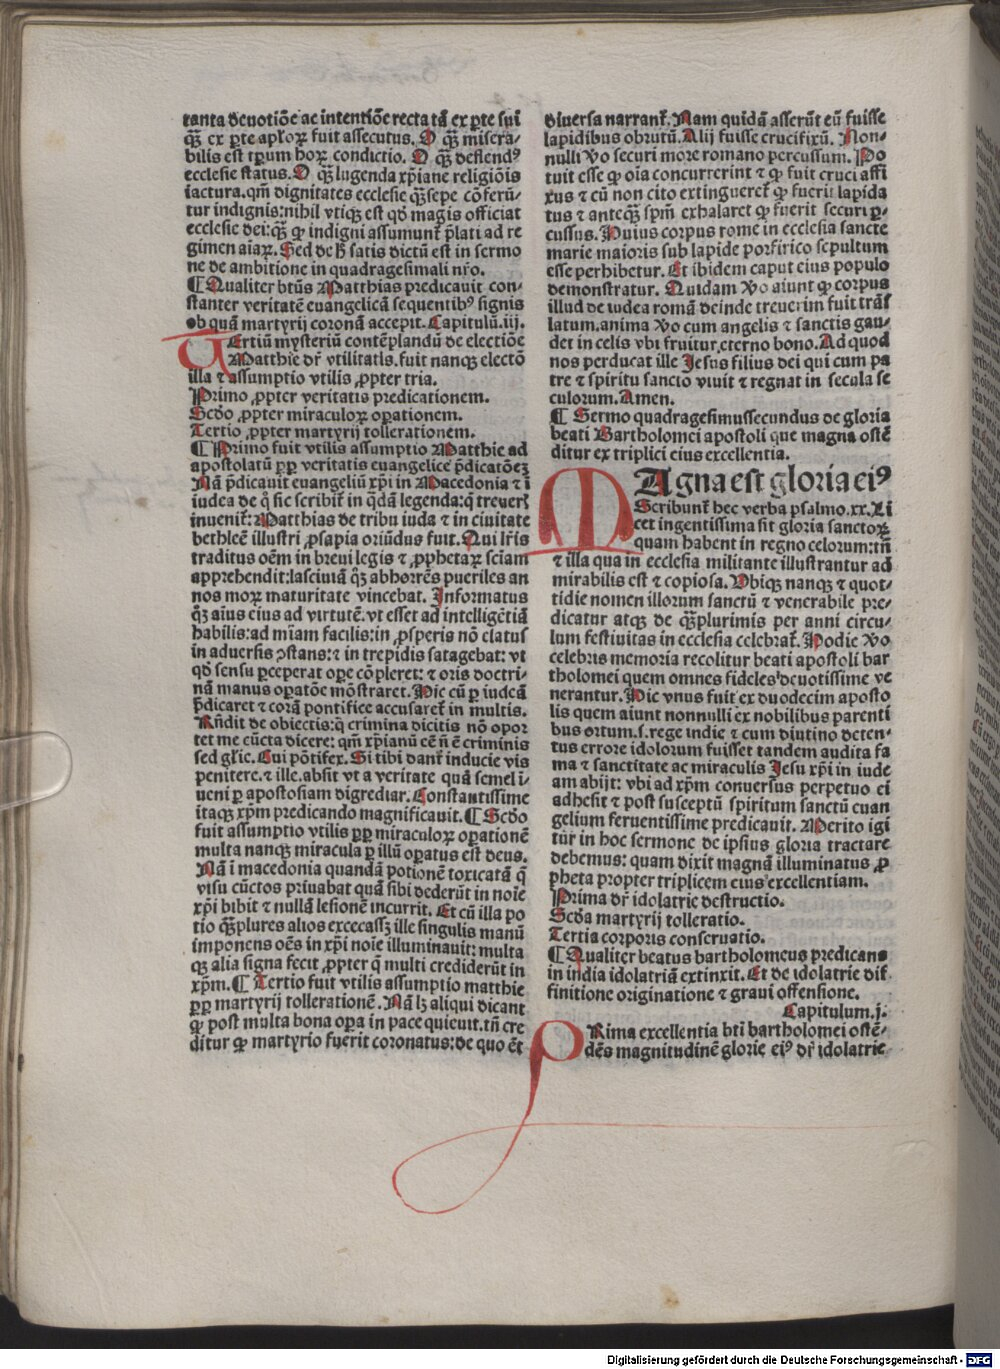 tanta deuotiõe ac intentiõe recta tã ex ꝑte sui
qȝ̃ ex ꝑte apl'oꝝ fuit assecutus. O qȝ̃ misera-
bilis est tꝑum hoꝝ condictio. O qȝ̃ deflendꝰ
ecclesie status. O qȝ̃ lugenda xp̃iane religiõis
iactura. qm̃ dignitates ecclesie qȝ̃sepe cõferũ-
tur indignis: nihil vtiqȝ est qd̃ magis officiat
ecclesie dei: qȝ̃ ꝙ indigni assumunt̃ p̃lati ad re
gimen aĩaꝝ. Sed de h̃ satis dictũ est in sermo
ne de ambitione in quadragesimali nr̃o.
¶ Qualiter btũs Matthias predicauit con-
stanter veritatẽ euangelicã sequentibꝰ signis
ob quã martyrij coronã accepit. Capitulũ. iij.
Ertiũ mysteriũ contẽplandũ de electiõe
Matthie dr̃ vtilitatis. fuit nanqȝ electõ
illa ⁊ assumptio vtilis ꝓpter tria.
Primo ꝓpter veritatis predicationem.
Scd̃o ꝓpter miraculoꝝ oꝑationem.
Tertio ꝓpter martyrij tollerationem.
¶ Primo fuit vtilis assumptio Matthie ad
apostolatũ ꝓꝑ veritatis euangelice p̃dicatõeȝ
Nã p̃dicauit euangeliũ xp̃i in Macedonia ⁊ ĩ
iudea de q̃ sic scribit̃ in q̃dã legenda: q̃ treueris
inuenit̃: Matthias de tribu iuda ⁊ in ciuitate
bethleẽ illustri ꝓsapia oriũdus fuit. Qui lr̃is
traditus oẽm in breui legis ⁊ ꝓphetaꝝ sciam
apprehendit: lasciuiã qȝ abhorrẽs pueriles an
nos moꝝ maturitate vincebat. Informatus
qȝ aĩus eius ad virtutẽ. vt esset ad intelligẽtiã
habilis: ad mĩam facilis: in ꝓsperis nõ elatus
in aduersis ɔstans: ⁊ in trepidis satagebat: vt
qd̃ sensu ꝑceperat oꝑe cõpleret: ⁊ oris doctri-
nã manus oꝑatõe mõstraret. Hic cũ ꝑ iudeã
p̃dicaret ⁊ corã pontifice accusaret̃ in multis.
Rñdit de obiectis: q̃ crimina dicitis nõ opor
tet me cũcta dicere: qm̃ xp̃ianũ cẽ ñ ẽ criminis
sed gl'ie. Cui põtifex. Si tibi dant̃ inducie vis
penitere. ⁊ ille. absit vt a veritate quã semel ĩ-
ueni ꝑ apostosiam digrediar. Constantissime
itaqȝ xp̃m predicando magnificauit. ¶ Scd̃o
fuit assumptio vtilis ꝓꝑ miraculoꝝ oꝑationẽ
multa nanqȝ miracula ꝑ illũ oꝑatus est deus.
Nã ĩ macedonia quandã potionẽ toxicatã q̃
visu cũctos priuabat quã sibi dederũt in noĩe
xp̃i bibit ⁊ nullã lesionẽ incurrit. Et cũ illa po
tio qȝ̃plures alios excecassȝ ille singulis manũ
imponens oẽs in xp̃i noĩe illuminauit: multa
qȝ alia signa fecit ꝓpter q̃ multi crediderũt in
xp̃m. ¶ Tertio fuit vtilis assumptio matthie
ꝓꝑ martyrij tollerationẽ. Nã lȝ aliqui dicant
ꝙ post multa bona oꝑa in pace quieuit. tñ cre
ditur ꝙ martyrio fuerit coronatus: de quo ẽt
diuersa narrant̃. Nam quidã asserũt eũ fuisse
lapidibus obrutũ. Alij fuisse crucifixũ. Non-
nulli v̾o securi more romano percussum. Po
tuit esse ꝙ oĩa concurrerint ⁊ ꝙ fuit cruci affi
xus ⁊ cũ non cito extingueret̃ ꝙ fuerit lapida
tus ⁊ anteqȝ̃ spm̃ exhalaret ꝙ fuerit securi ꝑ-
cussus. Huius corpus rome in ecclesia sancte
marie maioris sub lapide porfirico sepultum
esse perhibetur. Et ibidem caput eius populo
demonstratur. Quidam v̾o aiunt ꝙ corpus
illud de iudea romã deinde treuerim fuit trãs
latum. anima v̾o cum angelis ⁊ sanctis gau-
det in celis vbi fruitur, eterno bono. Ad quod
nos perducat ille Jesus filius dei qui cum pa
tre ⁊ spiritu sancto viuit ⁊ regnat in secula se
culorum. Amen.
¶ Sermo quadragesimussecundus de gloria
beati Bartholomei apostoli que magna ostẽ
ditur ex triplici eius excellentia.
MAgna est gloria eiꝰ
Scribunt̃ hec verba psalmo. xx. Li
cet ingentissima sit gloria sanctoꝝ
quam habent in regno celorum: tñ
⁊ illa qua in ecclesia militante illustrantur ad
mirabilis est ⁊ copiosa. Vbiqȝ nanqȝ ⁊ quot-
tidie nomen illorum sanctũ ⁊ venerabile pre-
dicatur atqȝ de qȝ̃plurimis per anni circu-
lum festiuitas in ecclesia celebrat̃. Hodie v̾o
celebris memoria recolitur beati apostoli bar
tholomei quem omnes fideles deuotissime ve
nerantur. Hic vnus fuit ex duodecim aposto
lis quem aiunt nonnulli ex nobilibus parenti
bus ortum. s. rege indie ⁊ cum diutino deten-
tus errore idolorum fuisset tandem audita fa
ma ⁊ sanctitate ac miraculis Jesu xp̃i in iude
am abijt: vbi ad xp̃m conuersus perpetuo ei
adhesit ⁊ post susceptũ spiritum sanctũ euan
gelium feruentissime predicauit. Merito igi
tur in hoc sermone de ipsius gloria tractare
debemus: quam dixit magnã illuminatus ꝓ
pheta propter triplicem eius excellentiam.
Prima dr̃ idolatrie destructio.
Scd̃a martyrij tolleratio.
Tertia corporis conseruatio.
¶ Qualiter beatus bartholomeus predicans
in india idolatriã extinxit. Et de idolatrie dif
finitione originatione ⁊ graui offensione.
Capitulum. j.
PRima excellentia btĩ bartholomei ostẽ-
dẽs magnitudinẽ glorie eiꝰ dr̃ idolatrie
Digitalisierung gefördert durch die Deutsche Forschungsgemeinschaft - DFG